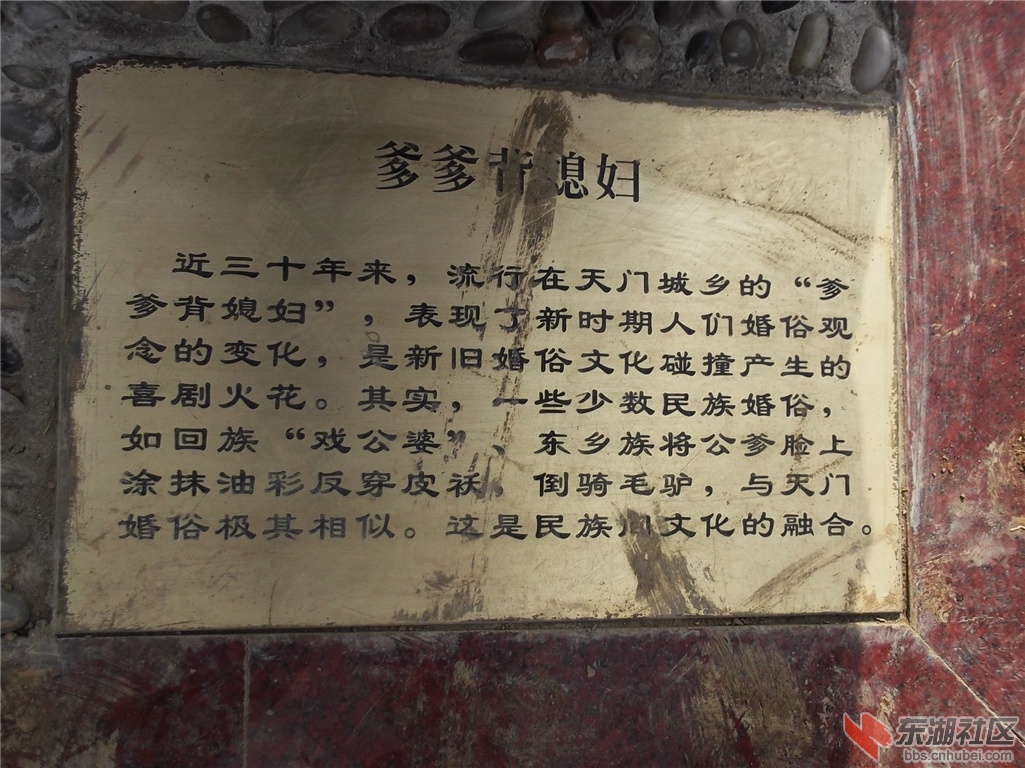 爹爹背媳妇
近三十年来，流行在天门城乡的“爹
爹背媳妇”，表现了新时期人们婚俗观
念的变化，是新旧婚俗文化碰撞产生的
喜剧火花。其实，一些少数民族婚俗，
如回族“戏公婆”、东乡族将公爹脸上
涂抹油彩反穿皮袄，倒骑毛驴，与天门
婚俗极其相似。这是民族间文化的融合。
东湖社区
bbs.cnhubei.com